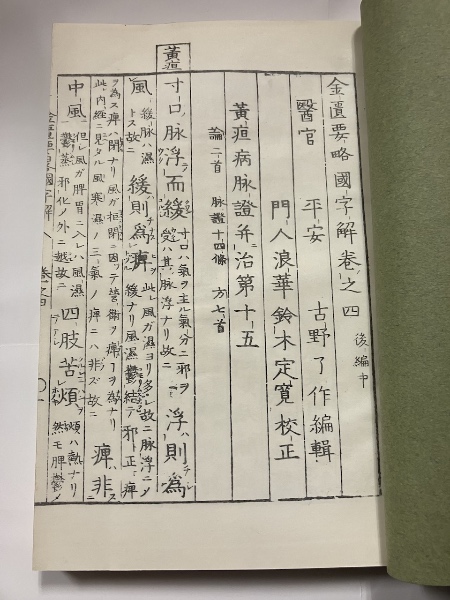 黃疸
金匱要略國字解卷之四 後編中
醫官 平安 古野了作編輯
門人浪華鈴木定寬校正
黃疸病脉證并治第十五
論二首 脉證十四條 方七首
寸口脉浮而緩 寸口ハ氣ヲ主ル氣分ニ邪ヲ受ハ其脉浮ナリ故ニ 浮則為
風 緩脉ハ濕トス故ニ 緩則為痺 此レ風ガ濕ヨリ移ル故ニ脉浮ニ緩ナリ風濕鬱結テ邪正痺
ヲ為ス痺ハ閉ナリ風ガ拒閉ニ因ッテ營衛ヲ痺
此内經ニ見タル風寒濕ノ三氣ノ痺ニハ非ズ故ニ 痺非
中風 但レ風ガ脾胃ニ入レハ風濕鬱蒸邪化ノ外ニ越故ニ 四肢苦煩 煩ハ熱ナリ然モ脾鬱
金匱要略國字解 卷之四